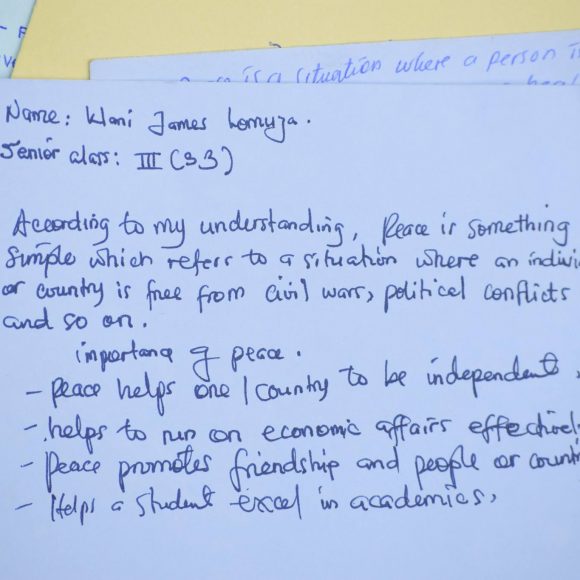 is a situation where a person
Name: Klani James Lomuja.
Senior class: III (S3)
According to my understanding, Peace is something
simple which refers to a situation where an individ
or country is free from civil wars, political conflicts
and so on.
importance of peace.
- peace helps one / country to be independent.
- helps to run on economic affairs effectively
- Peace promotes friendship and people or countri
- Helps a student excel in academics.